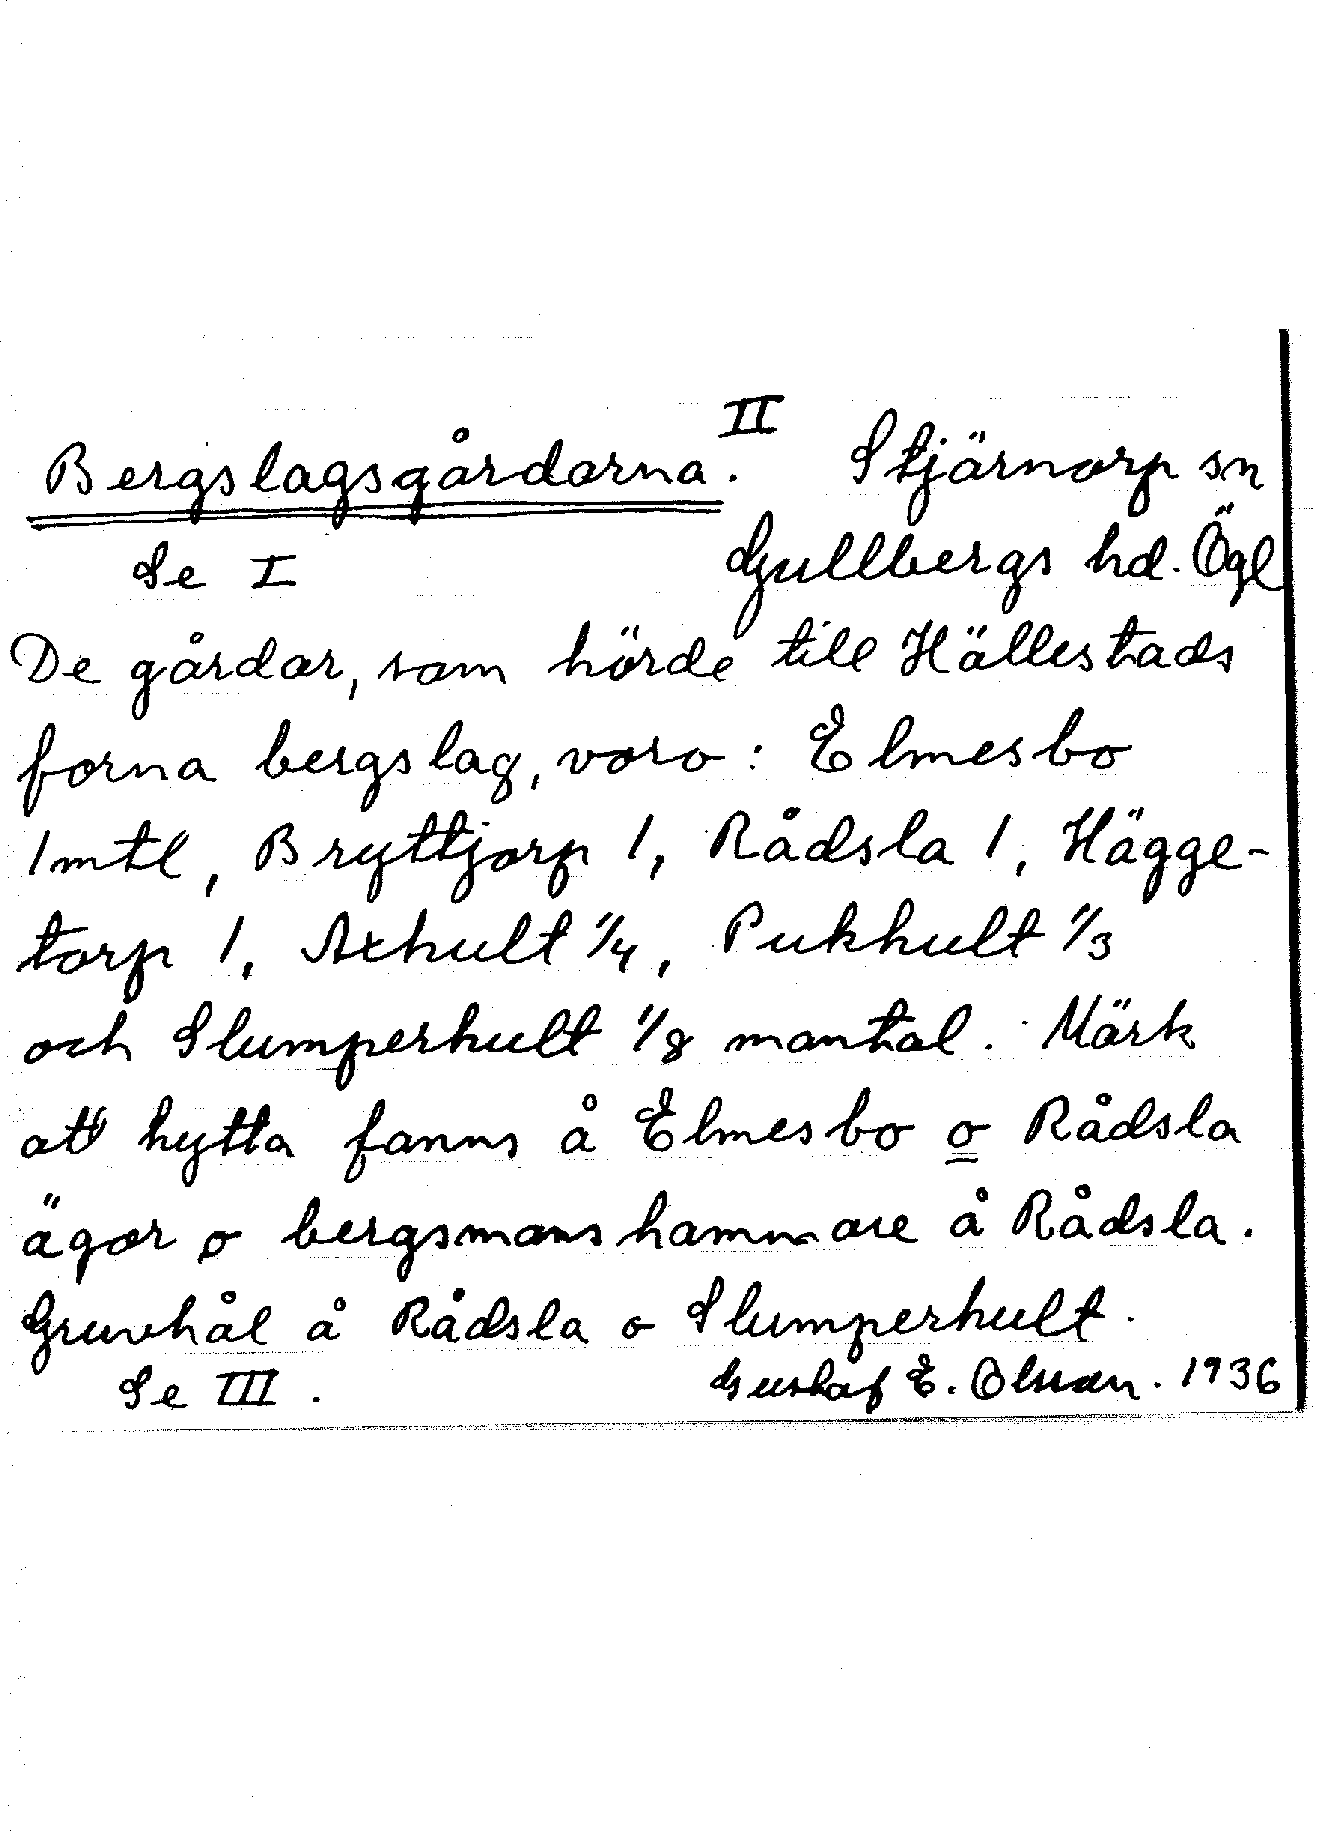 II
Bergslagsgårdarna. Stjärnorp sn
Se I Gullbergs hd. Ögl
De gårdar, som hörde till Hällestads
forna bergslag, voro: Elmesbo
1 mtl, Bryttjorp 1, Rådsla 1, Hägge-
torp 1, Axhult 1/4, Pukhult 1/3
och Slumperhult 1/8 mantal. Märk
att hytta fanns å Elmesbo o Rådsla
ägor o bergsmanshammare å Rådsla.
Gruvhål å Rådsla o Slumperhult.
Se III. Gustaf E. Olsson. 1936